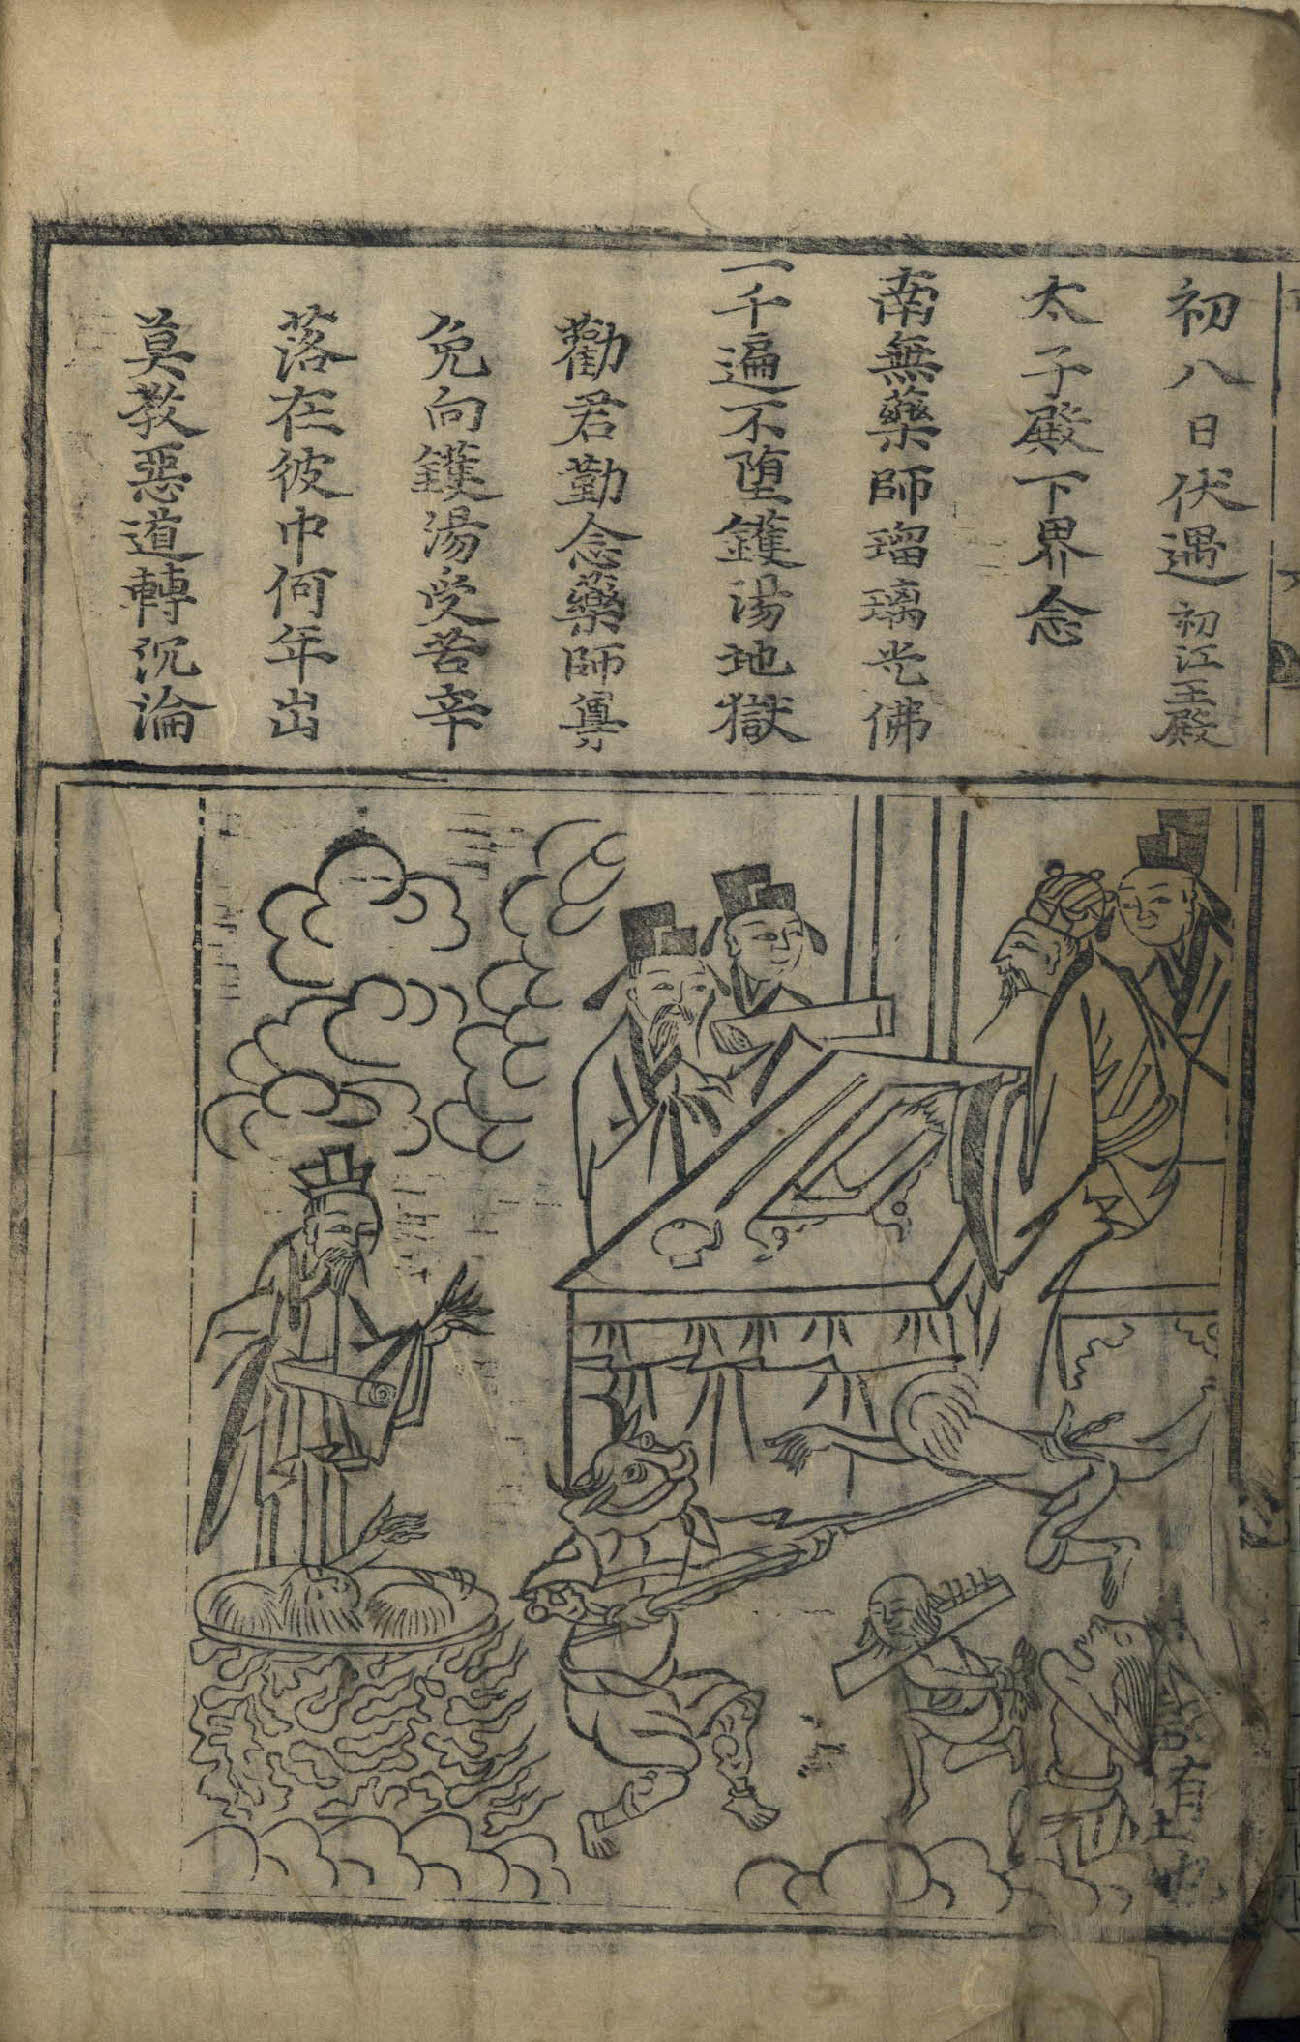 初八日伏遇初江王殿
太子殿下界念
南無藥師瑠璃光佛
一千遍不堕鑊湯地獄
勸君勤念藥師尊
免向鑊湯受苦辛
落在彼中何年出
莫教惡道轉沉淪